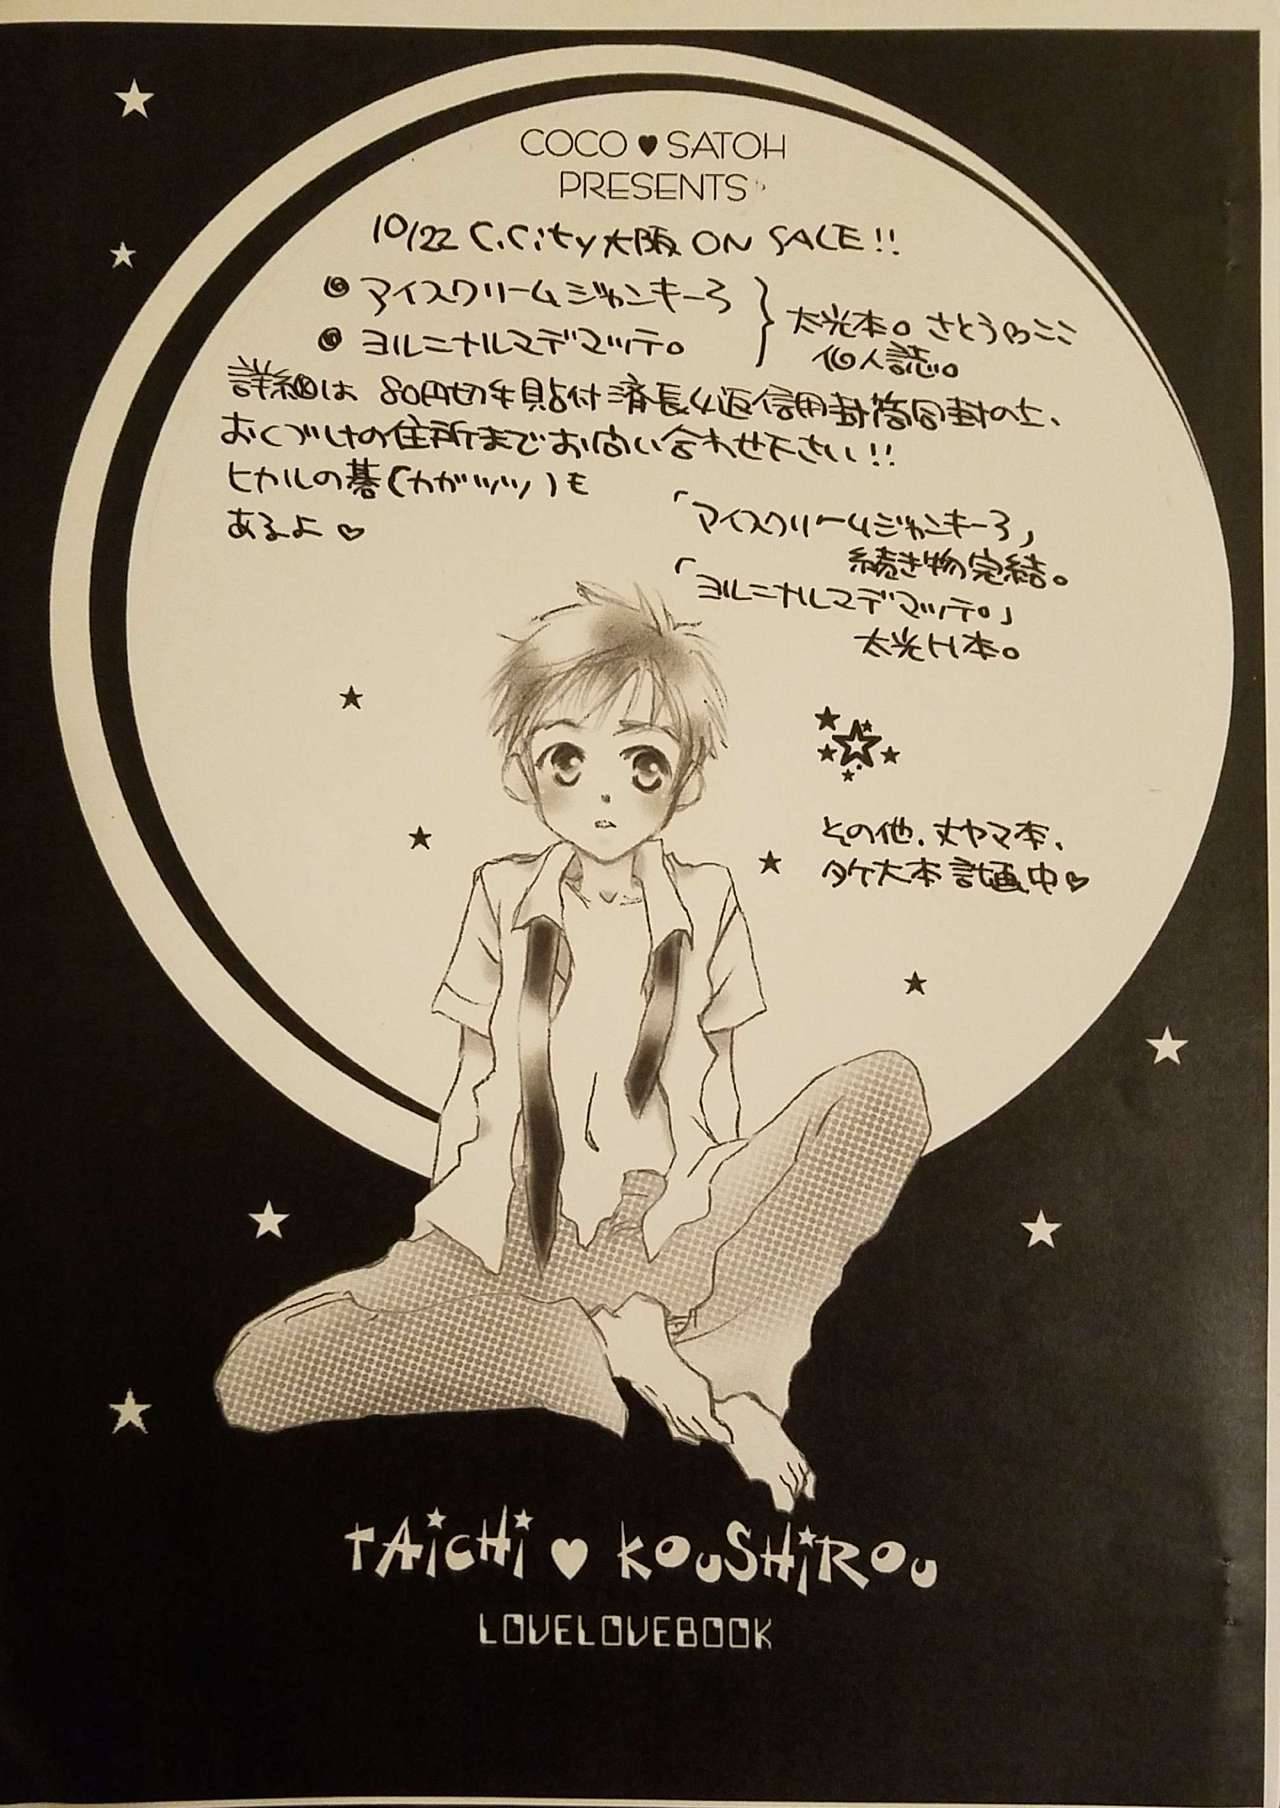 COCO ♥ SATOH
PRESENTS
10/22 C.City大阪 ON SALE!!
◎ アイスクリームジャンキーろ
◎ ヨルニナルマデマッテ。
太光本。さとう♡ここ
個人誌。
詳細は 80円切手貼付済長4返信用封筒同封の上、
おくづけの住所までお問い合わせ下さい!!
ヒカルの碁(カガツツ)も
あるよ♡
「アイスクリームジャンキーろ」
続き物完結。
「ヨルニナルマデマッテ。」
太光H本。
その他、丈ヤマ本、
タケ大本 計画中♡
TAiCHi ♥ KOUSHiROU
LOVELOVEBOOK